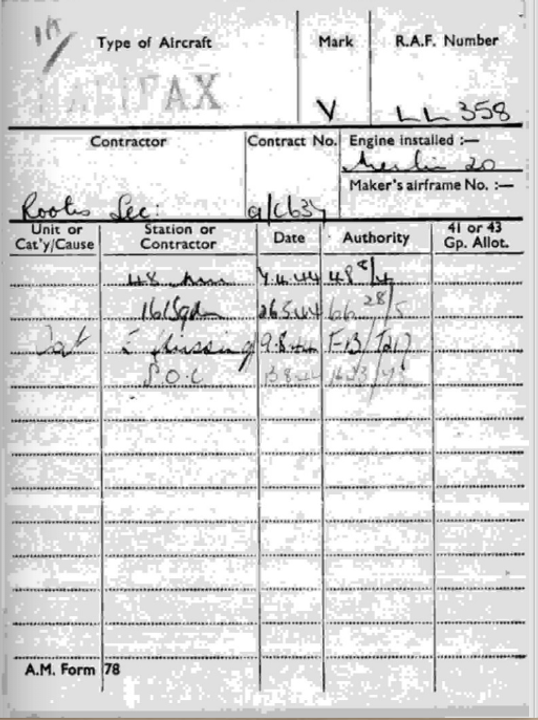 1A
Type of Aircraft Mark R.A.F. Number
HALIFAX V LL 358
Contractor Contract No. Engine installed :—
Merlin 20
Maker's airframe No. :—
Rootes Sec: 9/C637
Unit or Cat'y/Cause Station or Contractor Date Authority 41 or 43 Gp. Allot.
48 7.4.44 48 8/4
161 Sqdn 26.5.44 66 28/5
Cat E Missing 9.8.44
S.O.C
A.M. Form 78